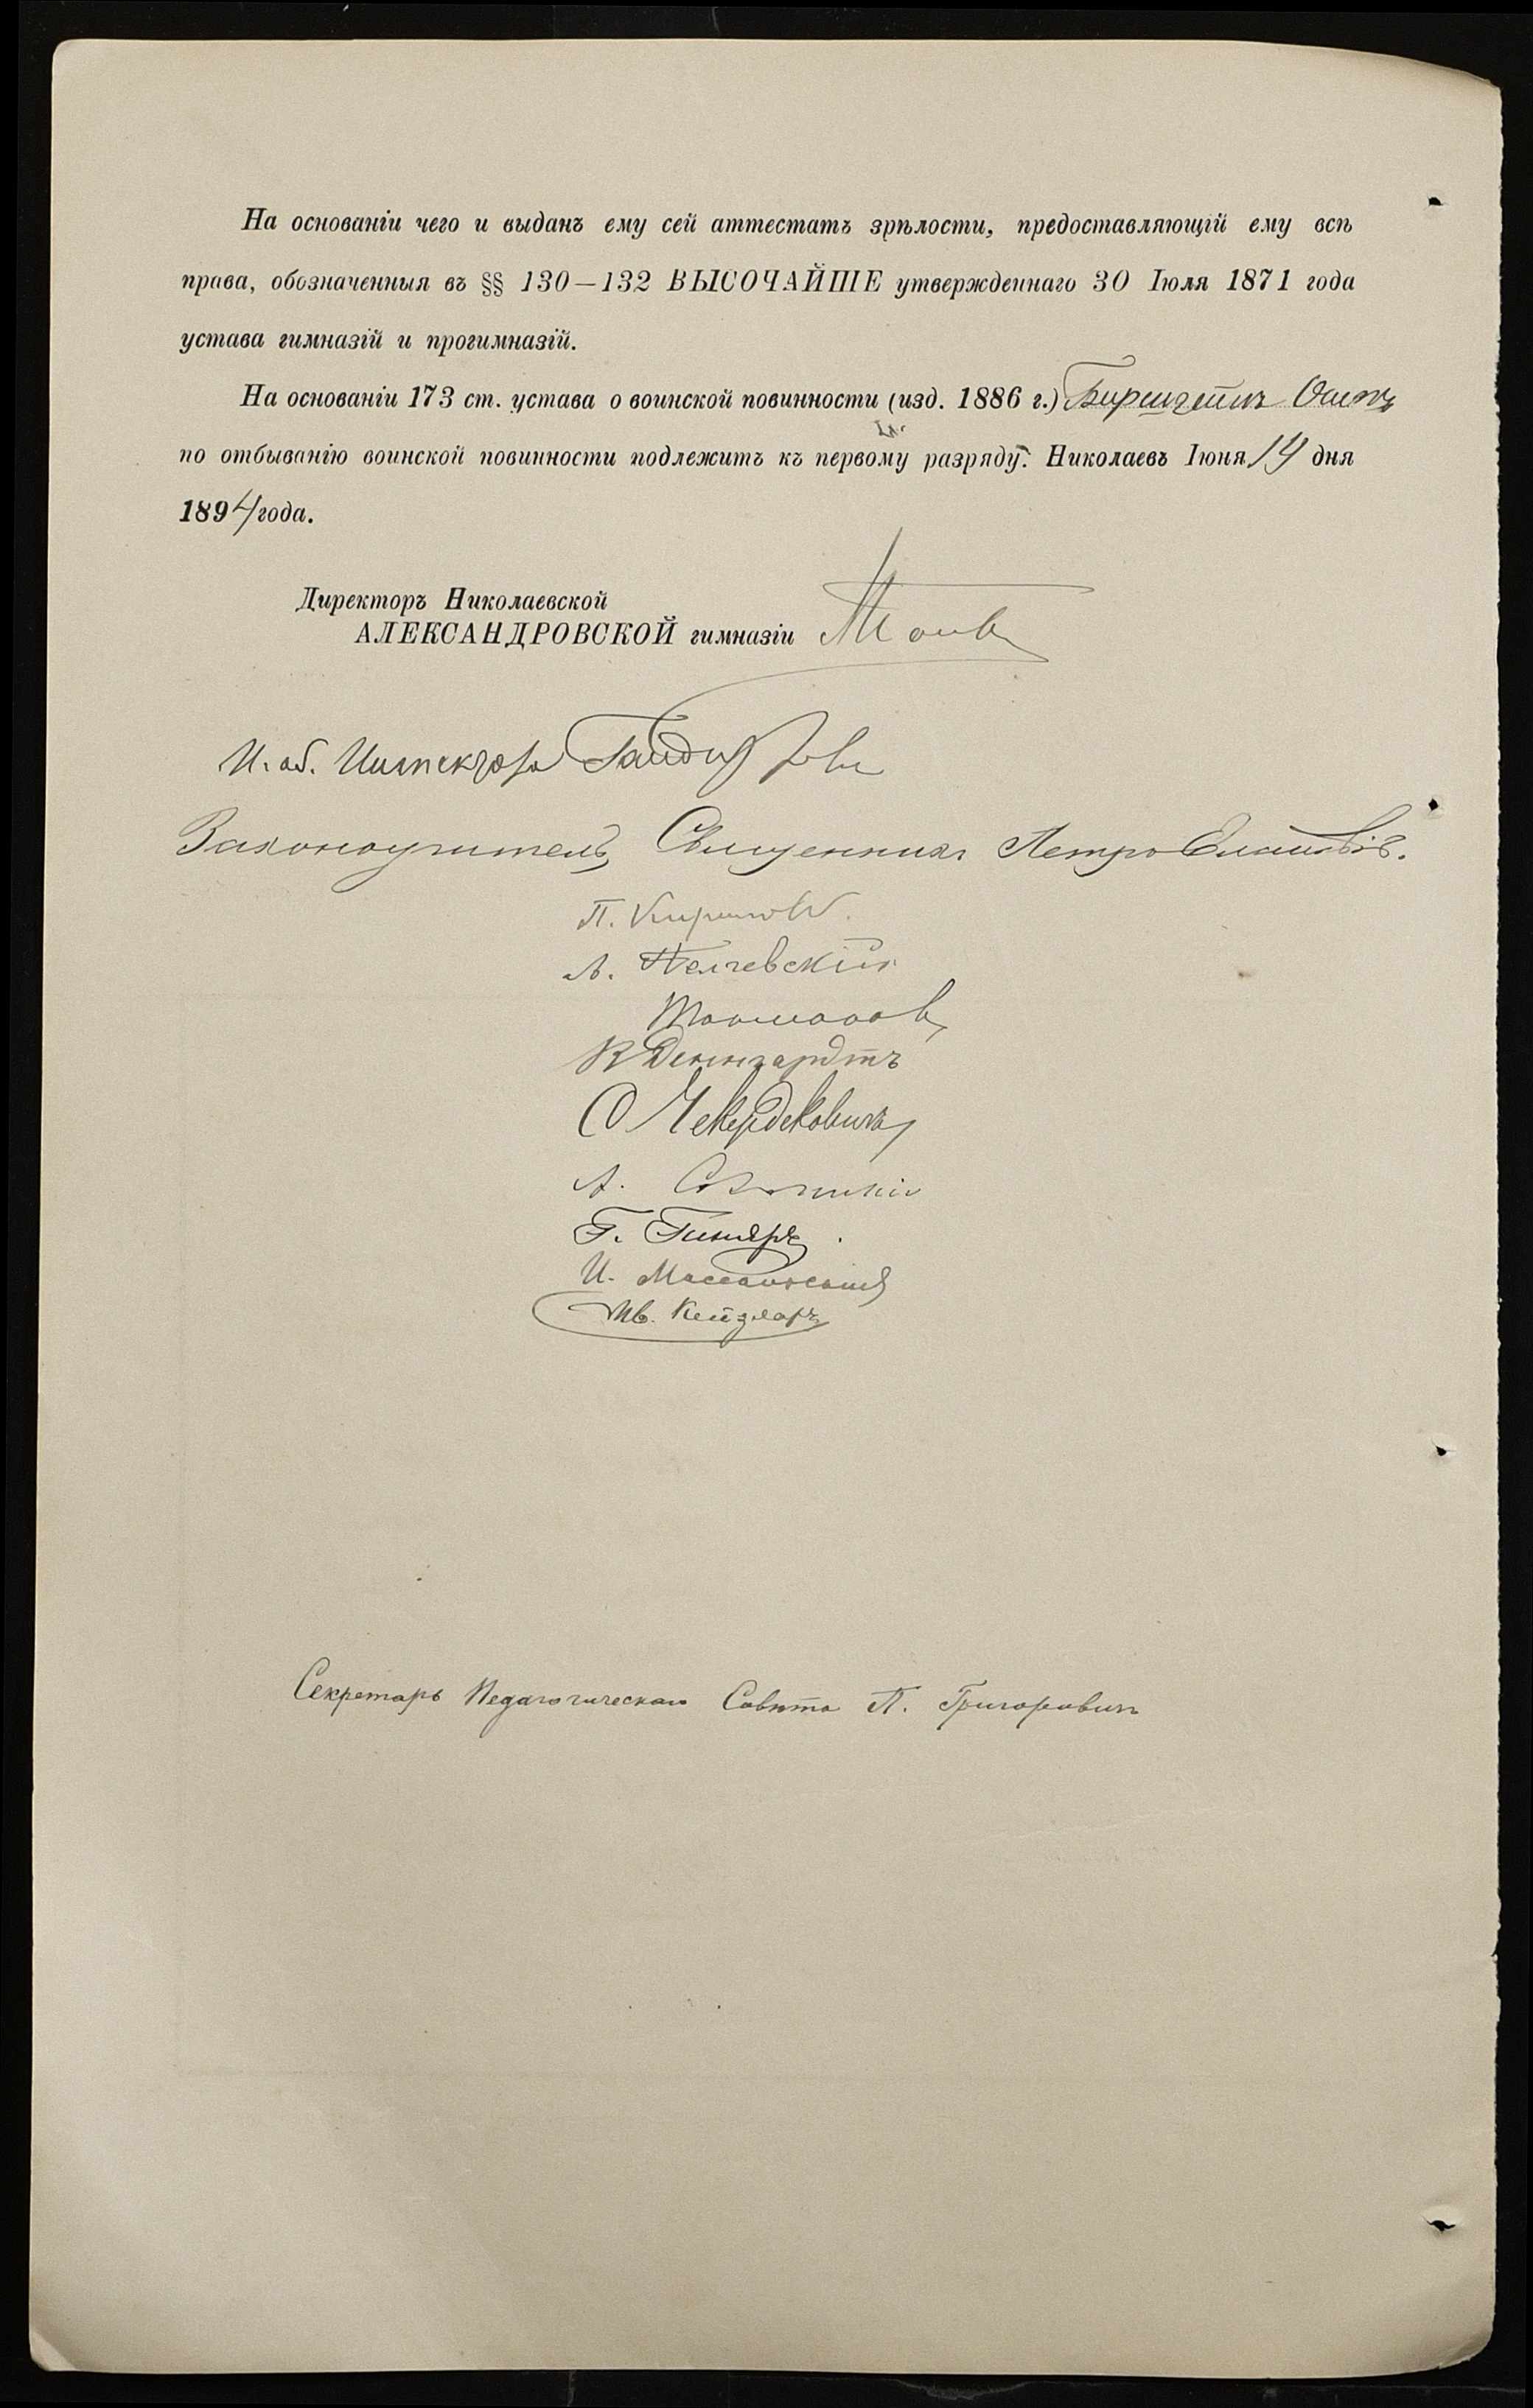 На основаніи чего и выданъ ему сей аттестатъ зрѣлости, предоставляющій ему всѣ
права, обозначенныя въ §§ 130—132 ВЫСОЧАЙШЕ утвержденнаго 30 Іюля 1871 года
устава гимназій и прогимназій.
На основаніи 173 ст. устава о воинской повинности (изд. 1886 г.)
по отбыванію воинской повинности подлежитъ къ первому разряду. Николаевъ Іюня 14 дня
1894 года.
Директоръ Николаевской
АЛЕКСАНДРОВСКОЙ гимназіи
И. об. Инспектора
Законоучитель, Священникъ Петръ
П.
А.
К Деннгардтъ
О
А.
Г.
И.
Ив. Кейзларъ
Секретарь Педагогическаго Совѣта П. Григоровичъ